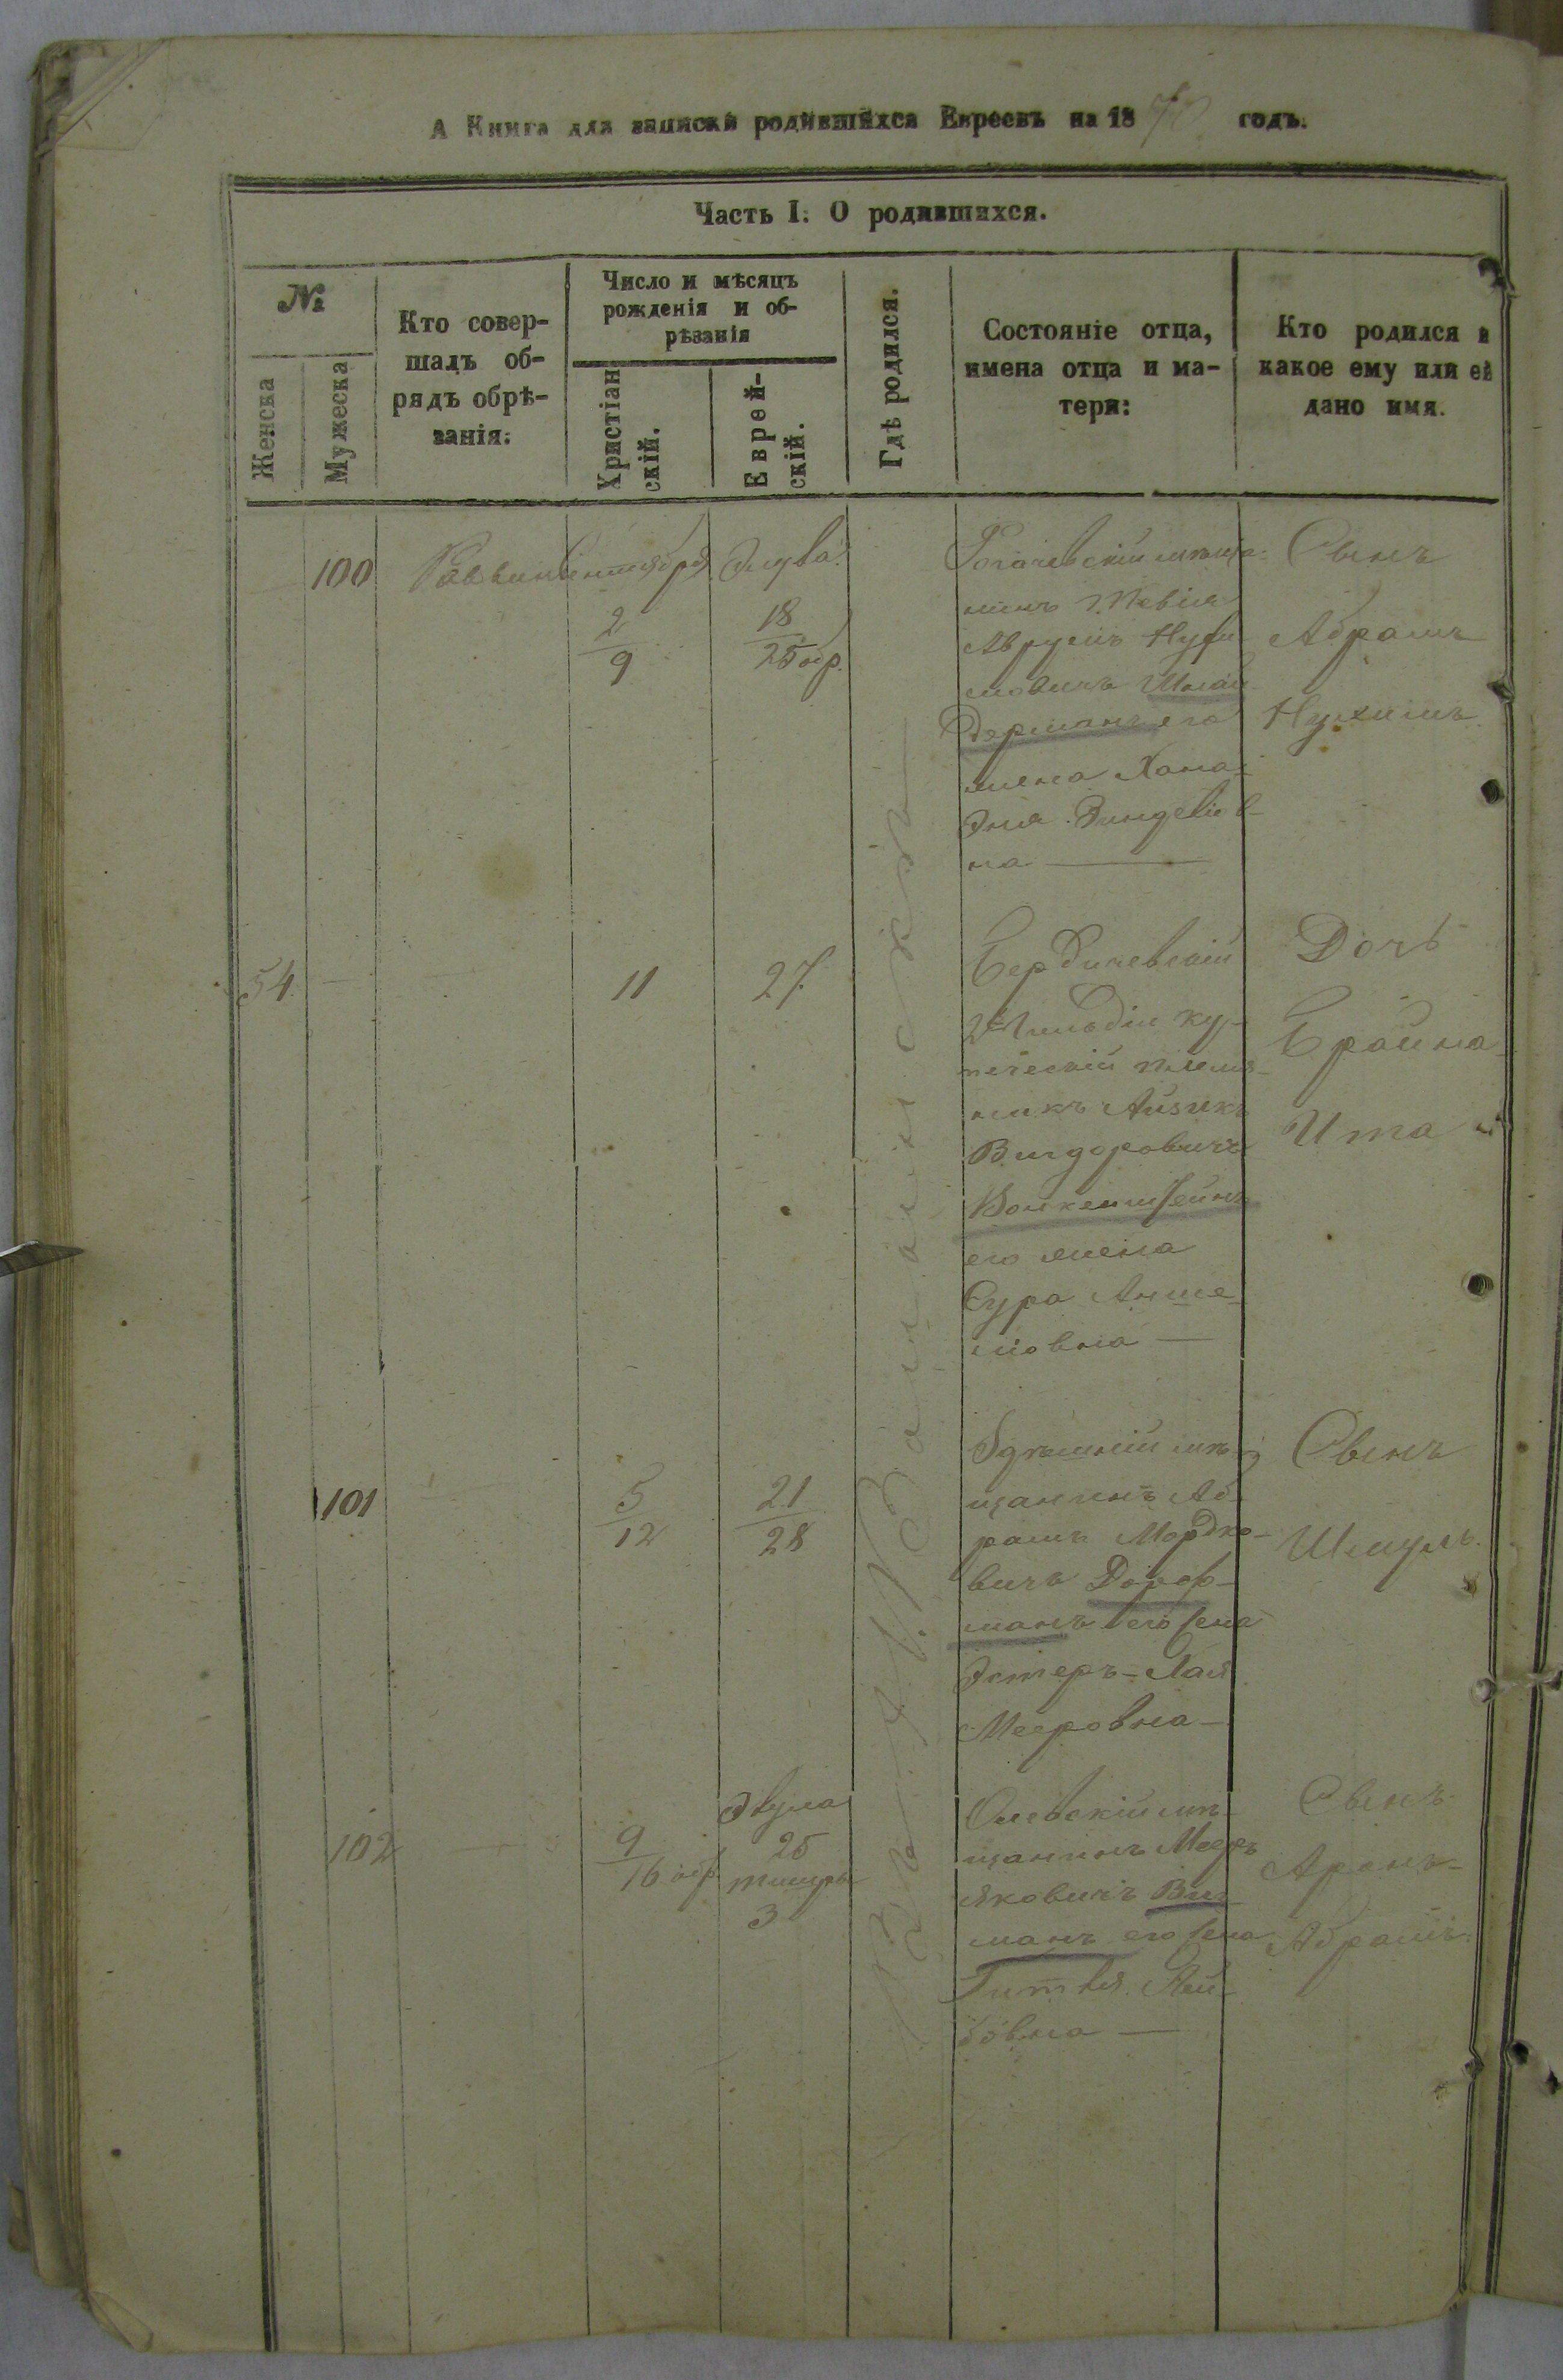 А Книга для записки родившихся Евреевъ на 1870 годъ.
Часть I. О родившихся.
№
Женска
Мужеска
Кто совер-
шалъ об-
рядъ обрѣ-
занія.
Число и мѣсяцъ
рожденія и об-
рѣзанія
Христіан
скій.
Еврей-
скій.
Гдѣ родился.
Состояніе отца,
имена отца и ма-
тери:
Кто родился и
какое ему или ей
дано имя.
100
Раввинъ
Сентября
2
9
Элула
18
25 обр.
Рогачевскій мѣща-
нинъ Тевія
Аврумъ Нухи
мовичъ
его
жена Хана-
Эня
на
Сынъ
Абрамъ
Нухимъ
54
11
27
Бердичевскій
2й Гильдіи ку-
печескій племя-
никъ Айзикъ
Вигдоровичъ
его жена
Сура Анше-
ловна
Дочь
Брайна
Ита
101
5
12
21
28
Здѣшній мѣ-
щанинъ Аб-
рамъ Мордко-
вичъ Дорф-
манъ его жена
Эстеръ-Хая
Мееровна
Сынъ
Шмуль
102
9
16 обр
Элула
25
тишры
3
Олевскій мѣ-
щанинъ Мееръ
Яковичъ
манъ его жена
Гитля Лей-
бовна
Сынъ
Аронъ-
Абрамъ